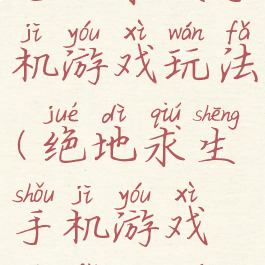 jī yóu xì wán fǎ
机游戏玩法
jué dì qiú shēng
(绝地求生
shǒu jī yóu xì
手机游戏